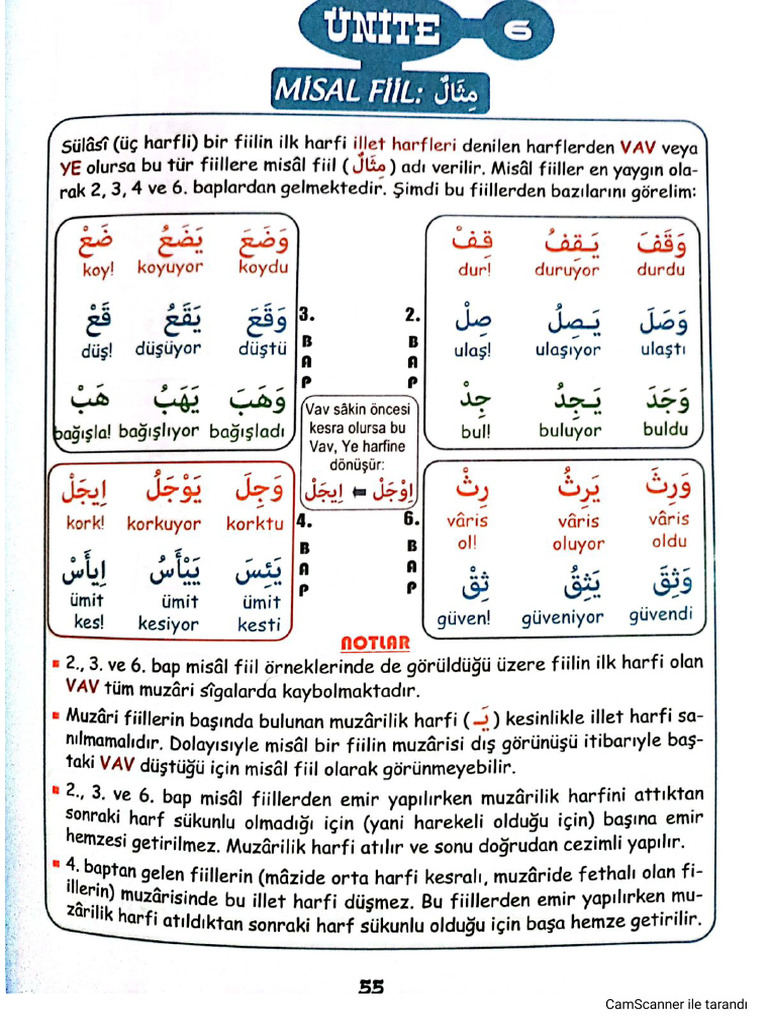 ÜNİTE 6
MİSAL FİİL: مِثَالٌ
Sülâsî (üç harfli) bir fiilin ilk harfi illet harfleri denilen harflerden VAV veya
YE olursa bu tür fiillere misâl fiil (مِثَالٌ) adı verilir. Misâl fiiller en yaygın ola-
rak 2, 3, 4 ve 6. baplardan gelmektedir. Şimdi bu fiillerden bazılarını görelim:
وَقَفَ يَـقِفُ قِفْ
durdu duruyor dur!
وَصَلَ يَـصِلُ صِلْ
ulaştı ulaşıyor ulaş!
وَجَدَ يَـجِدُ جِدْ
buldu buluyor bul!
2.
B
A
P
وَضَعَ يَضَعُ ضَعْ
koydu koyuyor koy!
وَقَعَ يَقَعُ قَعْ
düştü düşüyor düş!
وَهَبَ يَهَبُ هَبْ
bağışladı bağışlıyor bağışla!
3.
B
A
P
Vav sâkin öncesi
kesra olursa bu
Vav, Ye harfine
dönüşür:
اِوْجَلْ ⬅ اِيجَلْ
وَجِلَ يَوْجَلُ اِيجَلْ
korktu korkuyor kork!
يَئِسَ يَيْأَسُ اِيأَسْ
ümit ümit ümit
kesti kesiyor kes!
4.
B
A
P
وَرِثَ يَرِثُ رِثْ
vâris vâris vâris
oldu oluyor ol!
وَثِقَ يَثِقُ ثِقْ
güvendi güveniyor güven!
6.
B
A
P
NOTLAR
▪ 2., 3. ve 6. bap misâl fiil örneklerinde de görüldüğü üzere fiilin ilk harfi olan
VAV tüm muzâri sîgalarda kaybolmaktadır.
▪ Muzâri fiillerin başında bulunan muzârilik harfi (يَـ) kesinlikle illet harfi sa-
nılmamalıdır. Dolayısiyle misâl bir fiilin muzârisi dış görünüşü itibarıyle baş-
taki VAV düştüğü için misâl fiil olarak görünmeyebilir.
▪ 2., 3. ve 6. bap misâl fiillerden emir yapılırken muzârilik harfini attıktan
sonraki harf sükunlu olmadığı için (yani harekeli olduğu için) başına emir
hemzesi getirilmez. Muzârilik harfi atılır ve sonu doğrudan cezimli yapılır.
▪ 4. baptan gelen fiillerin (mâzide orta harfi kesralı, muzâride fethalı olan fi-
illerin) muzârisinde bu illet harfi düşmez. Bu fiillerden emir yapılırken mu-
zârilik harfi atıldıktan sonraki harf sükunlu olduğu için başa hemze getirilir.
55
CamScanner ile tarandı